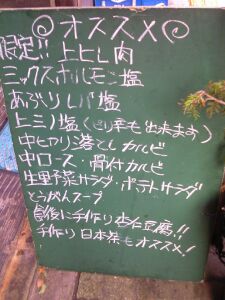 オススメ
限定!! 上ヒレ肉
ミックスホルモン塩
あぶりレバ塩
上ミノ塩(ピリ辛も出来ます)
中ヒカリ落としカルビ
中ロース・骨付カルビ
生野菜サラダ・ポテトサラダ
とうがんスープ
食後に手作り杏仁豆腐!!
手作り日本茶もオススメ!